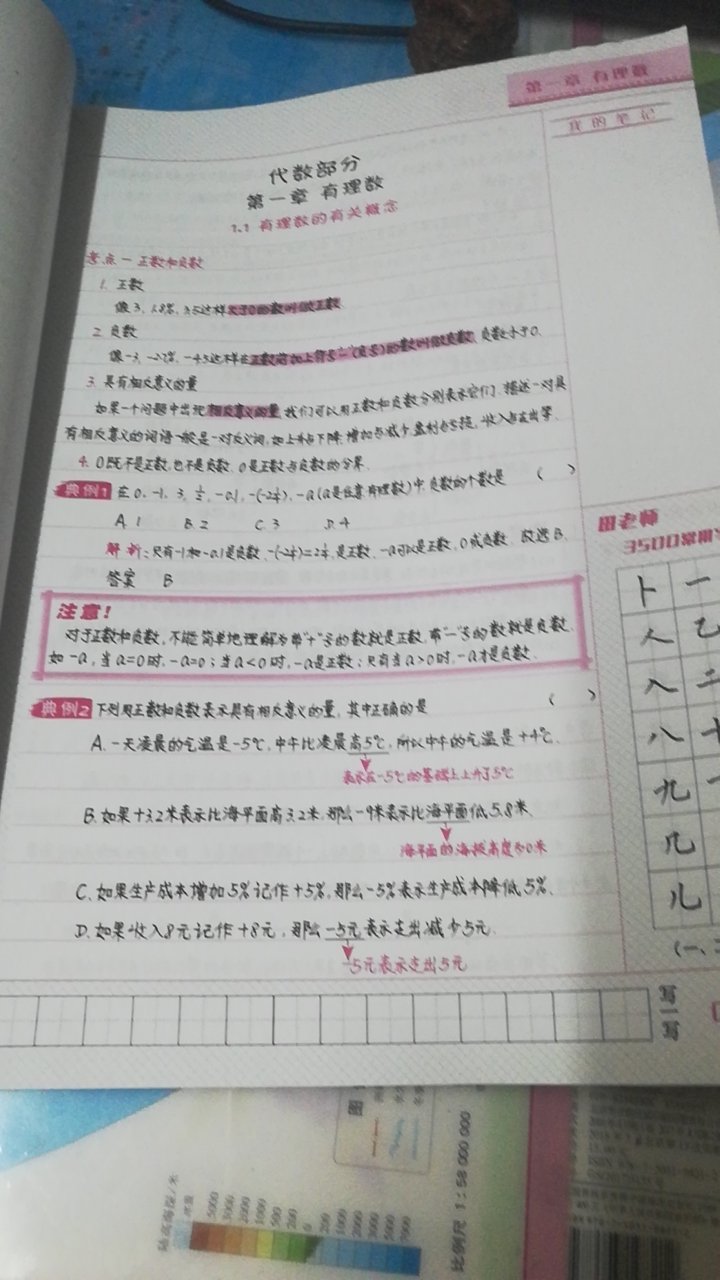 第一章 有理数
我的笔记
代数部分
第一章 有理数
1.1 有理数的有关概念
考点一 正数和负数
1. 正数
像3, 1.8%, 3.5这样大于0的数叫做正数.
2. 负数
像-3, -2.7%, -4.5这样在正数前加上符号“-”(负号)的数叫做负数, 负数小于0.
3. 具有相反意义的量
如果一个问题中出现相反意义的量, 我们可以用正数和负数分别表示它们. 描述一对具
有相反意义的词语一般是一对反义词, 如上升与下降, 增加与减少, 盈利与亏损, 收入与支出等.
4. 0既不是正数, 也不是负数, 0是正数与负数的分界.
典例1 在0, -1, 3, -0.1, , -a(a是任意有理数)中, 负数的个数是 ( )
A. 1 B. 2 C. 3 D. 4
解析: 只有-1和-0.1是负数, 是正数, -a可以是正数, 0或负数. 故选B.
答案 B
注意!
对于正数和负数, 不能简单地理解为带“+”号的数就是正数, 带“-”号的数就是负数.
如-a, 当a=0时, -a=0; 当a<0时, -a是正数; 只有当a>0时, -a才是负数.
典例2 下列用正数和负数表示具有相反意义的量, 其中正确的是 ( )
A. 一天凌晨的气温是-5℃, 中午比凌晨高5℃, 所以中午的气温是+4℃.
表示在-5℃的基础上上升了5℃
B. 如果+3.2米表示比海平面高3.2米, 那么-9米表示比海平面低5.8米.
海平面的海拔高度为0米
C. 如果生产成本增加5%记作+5%, 那么-5%表示生产成本降低5%.
D. 如果收入8元记作+8元, 那么-5元表示支出减少5元.
-5元表示支出5元
田老师
3500常用
卜 一
人 乙
入 二
八 十
九
几
儿
(一、
写一写
图
陆高海深/米
5000
3000
2000
1000
500
200
0
200
1000
2000
3000
5000
7000
比例尺 1:58 000 000